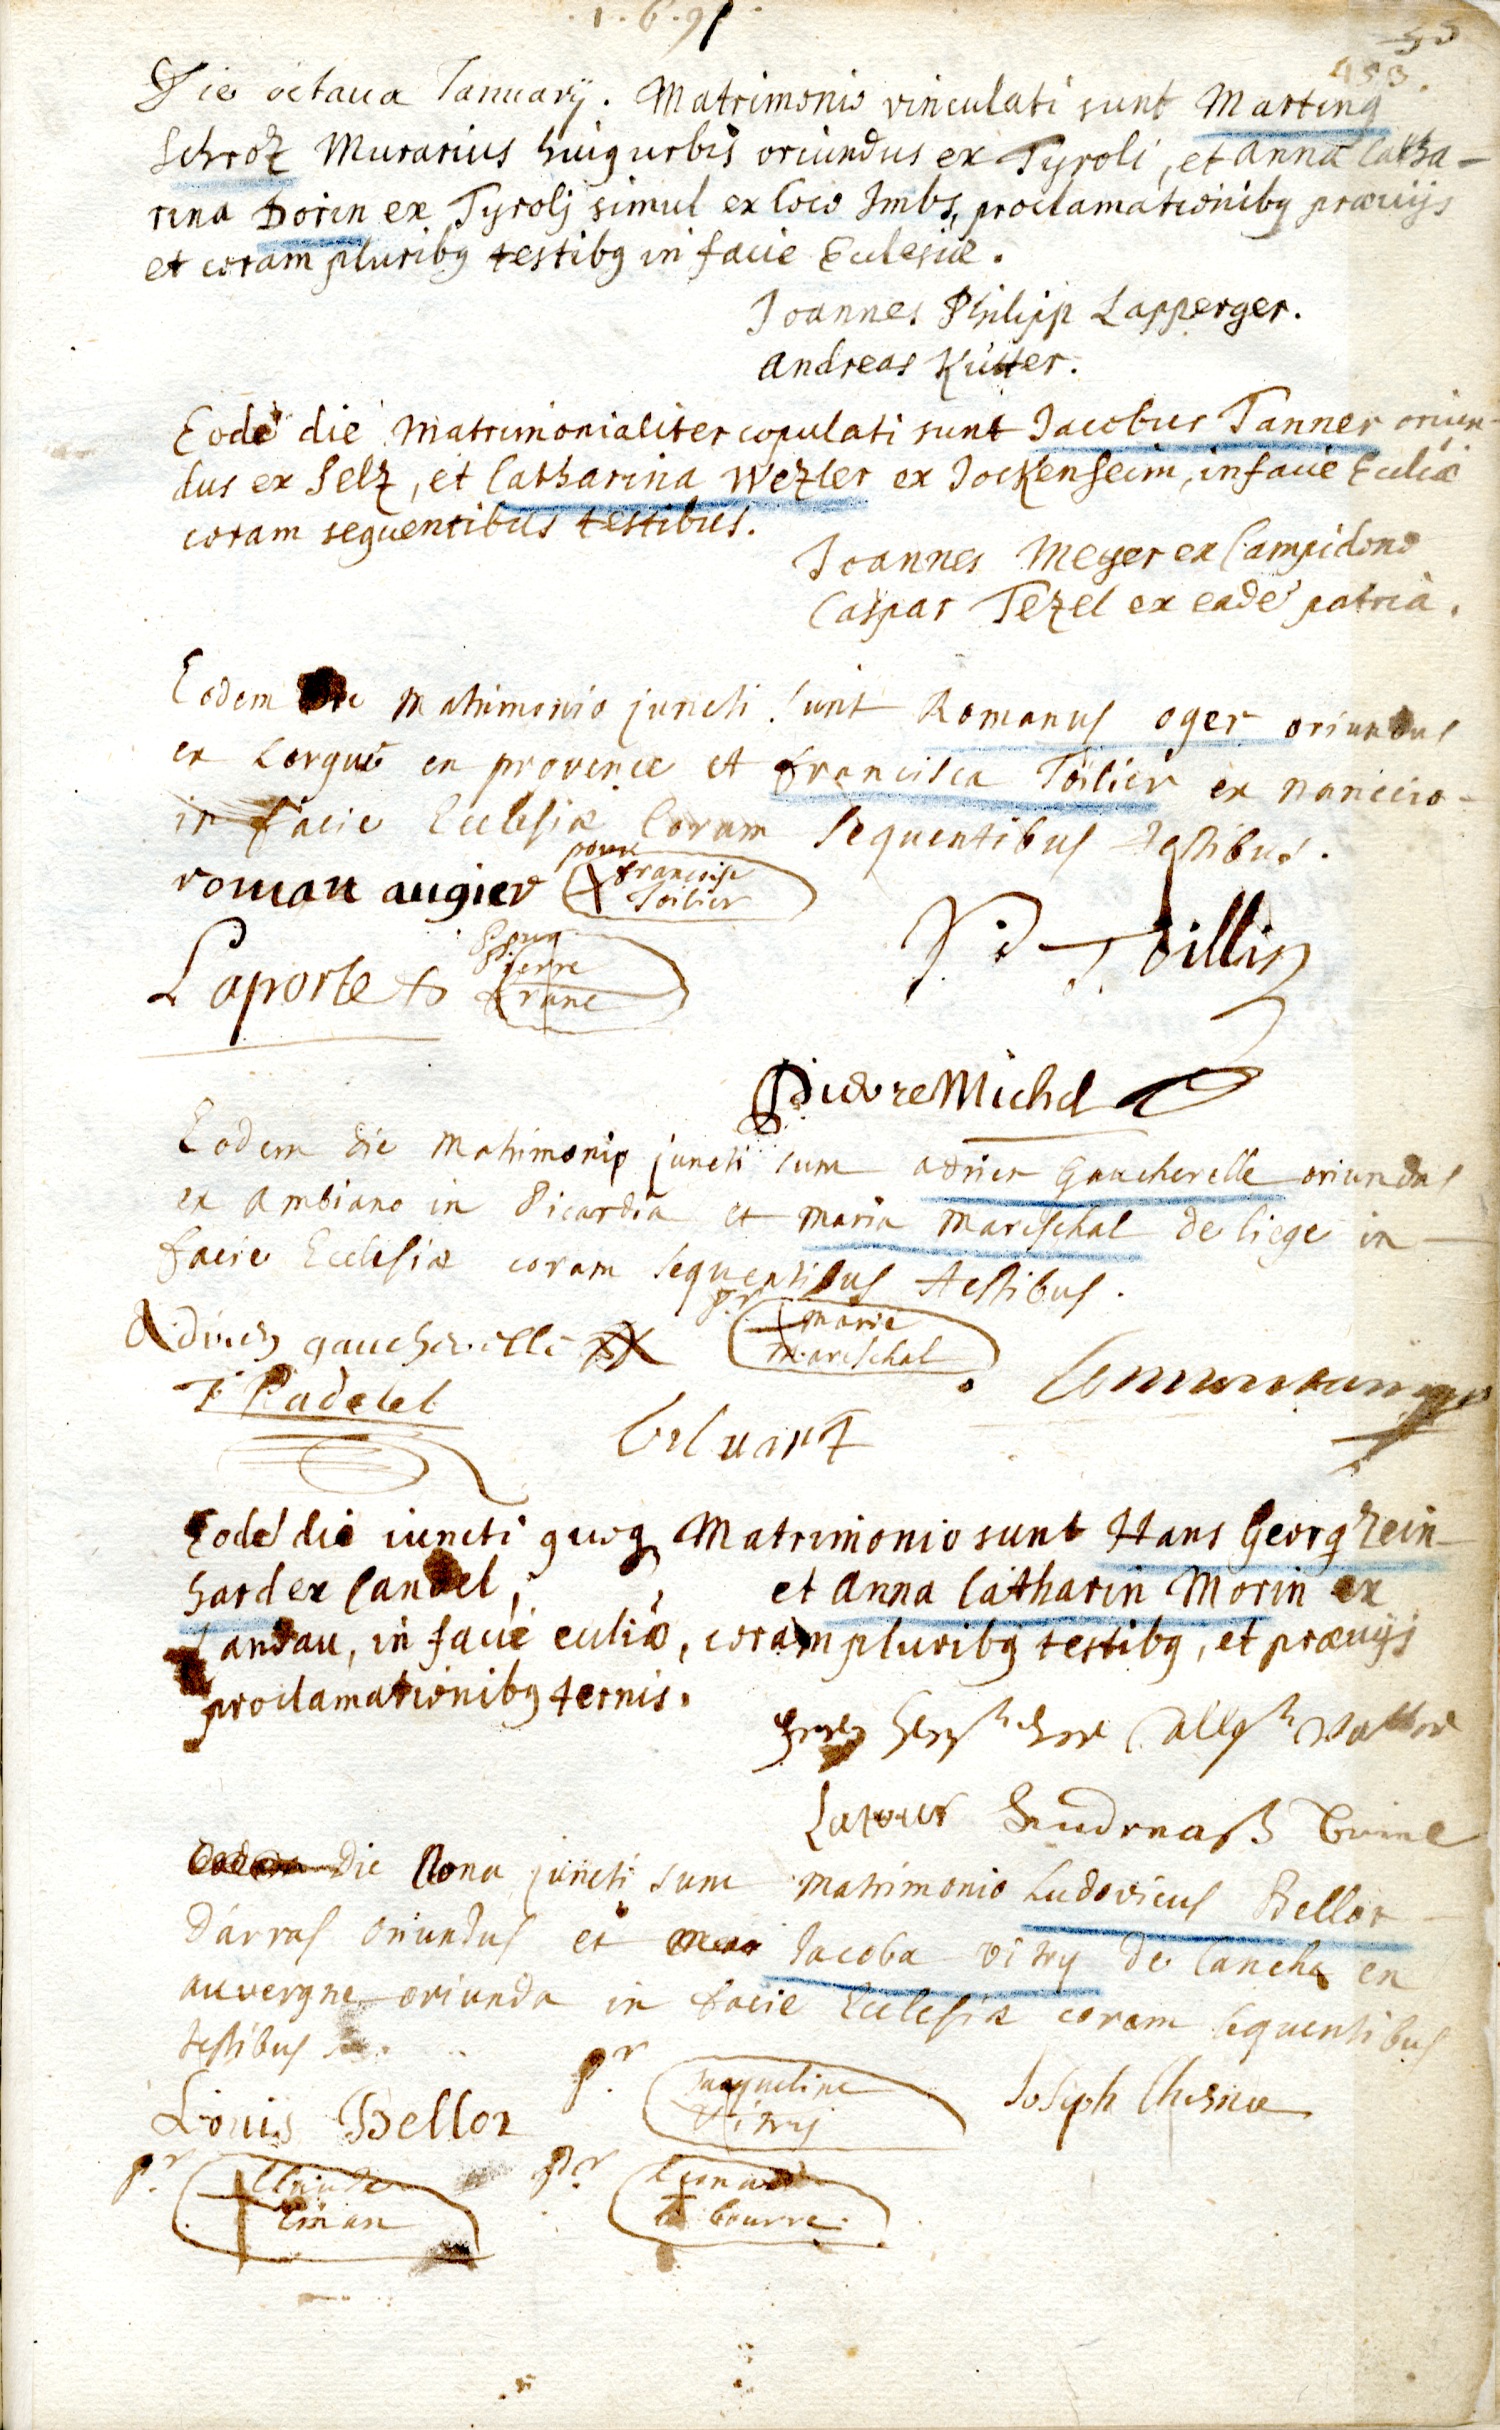 1691
55
453.
Die octaua Januarij. Matrimonio vinculati sunt Martinq
Schroz Murarius huiq urbis oriundus ex Tyroli, et Anna Catha-
rina Dorin ex Tyrolj simul ex loco Imbs, proclamationibq præuijs
et coram pluribq testibq in facie Ecclesiæ.
Joannes Philipp Lapperger.
Andreas Kutter.
Eodē die Matrimonialiter copulati sunt Jacobus Tanner oriun-
dus ex Selz, et Catharina Wezler ex Jockenheim, in facie Eccliæ
coram sequentibus testibus.
Joannes Meyer ex Campidono
Caspar Tezel ex eadē patria.
Eodem die Matrimonio juncti sunt Romanus oger oriundus
ex Lorgue en provence et francisca Toilier ex nanceio
in facie Ecclesiæ Coram sequentibus testibus.
roman augier
pour
francoise
Toilier
Laporte
pour
Pierre
franc
Pierre Michel
Eodem die Matrimonio juncti sunt adrien Gaucherelle oriundus
ex Ambiano in Picardia et maria mareschal de liege in
facie Ecclesiæ coram sequentibus testibus.
Adrien gaucherelle
pr
marie
mareschal
Radelet
Eodē die iuncti quoq Matrimonio sunt Hans Georg Lein-
hard ex Candel, et Anna Catharin Morin ex
Landau, in facie eccliæ, coram pluribq testibq, et præuijs
proclamationibq ternis.
die Nona juncti sunt matrimonio Ludovicus Bellor
Darras oriundus et Jacoba vitry de Canche en
auvergne oriunda in facie Ecclesiæ coram sequentibus
testibus
Louis Bellor
pr
Jacqueline
Vitry
Joseph Chesne
pr
Claude
pr
Leonard
bourre